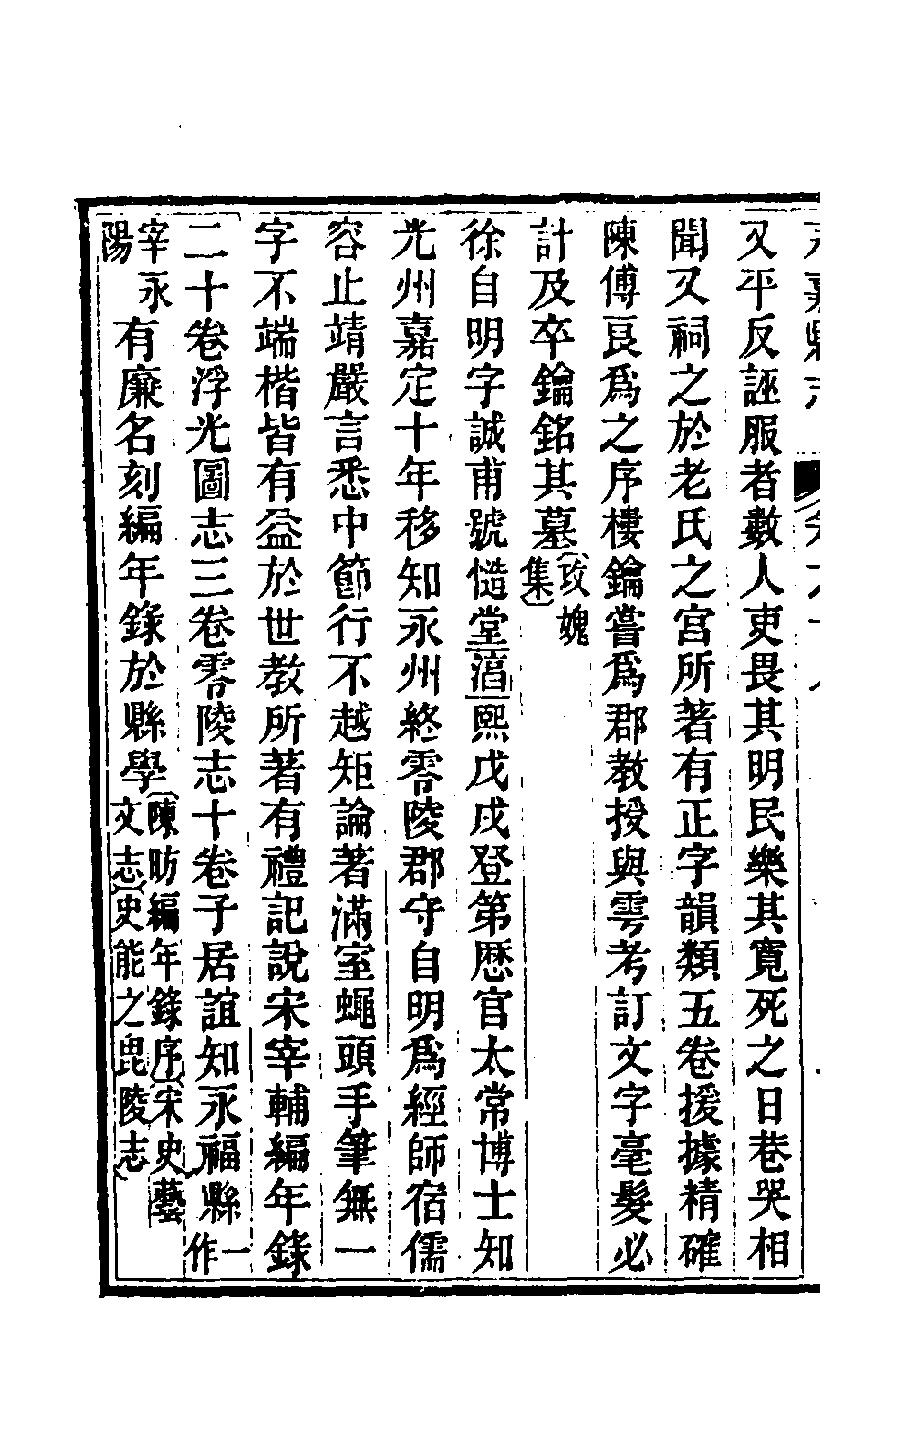 又平反誣服者數人吏畏其明民樂其寬死之日巷哭相
聞又祠之於老氏之宮所著有正字韻類五卷援據精確
陳傅良爲之序樓鑰嘗爲郡教授與雩考訂文字毫髮必
計及卒鑰銘其墓攻媿集
徐自明字誠甫號愭堂淳熙戊戌登第歷官太常博士知
光州嘉定十年移知永州終零陵郡守自明爲經師宿儒
容止靖嚴言悉中節行不越矩論著滿室蠅頭手筆無一
字不端楷皆有益於世教所著有禮記說宋宰輔編年錄
二十卷浮光圖志三卷零陵志十卷子居誼知永福縣一作
宰永陽有廉名刻編年錄於縣學陳昉編年錄序宋史藝文志史能之毘陵志